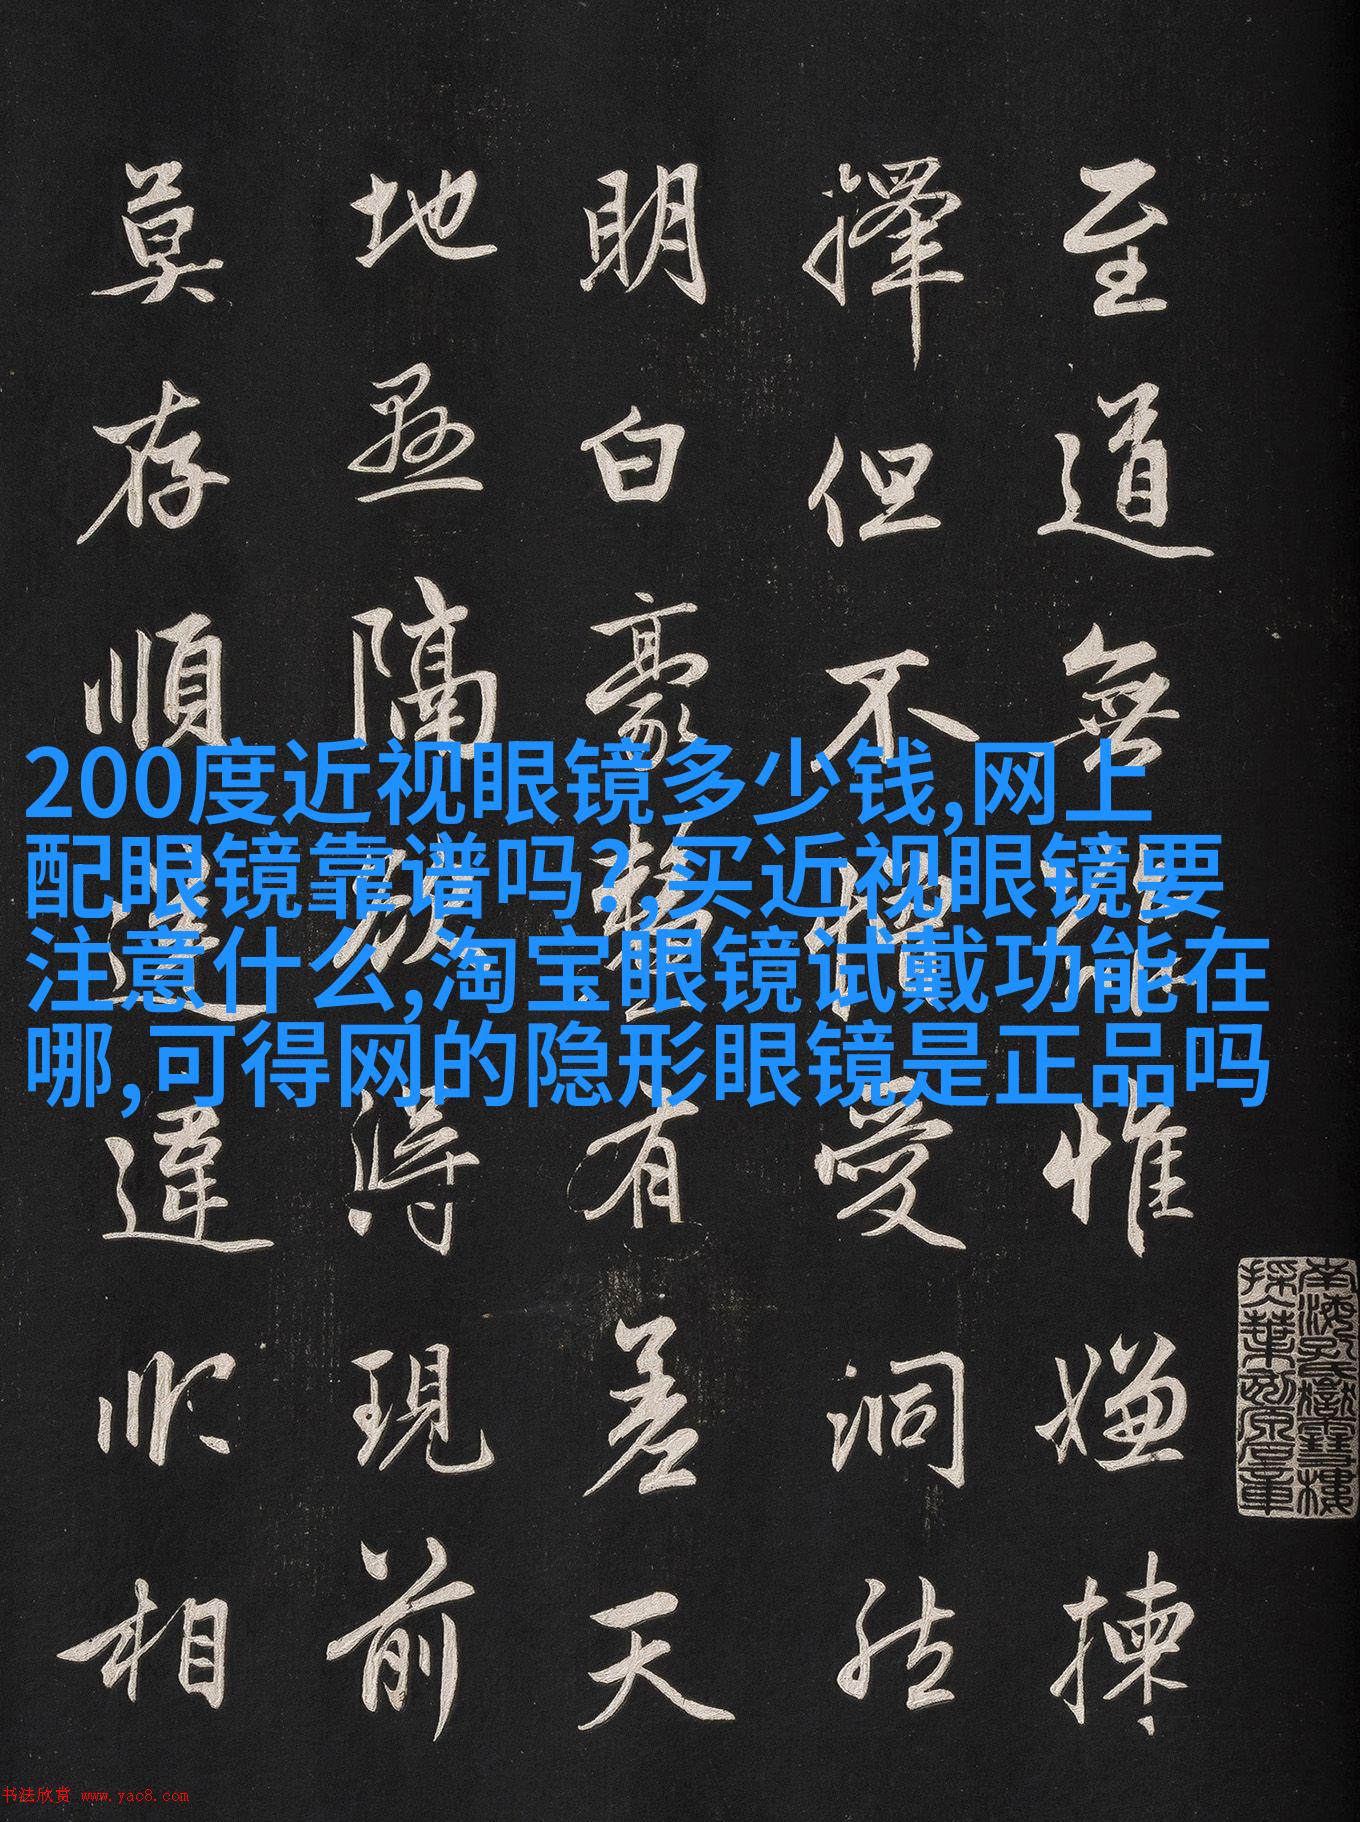 至道無難惟嫌揀
擇但不憎愛洞然
明白豪釐有差天
地懸隔欲得現前
莫存順逆違順相
200度近视眼镜多少钱,网上
配眼镜靠谱吗?,买近视眼镜要
注意什么,淘宝眼镜试戴功能在
哪,可得网的隐形眼镜是正品吗
南海孔氏嶽雪樓
书法欣赏 www.yac8.com